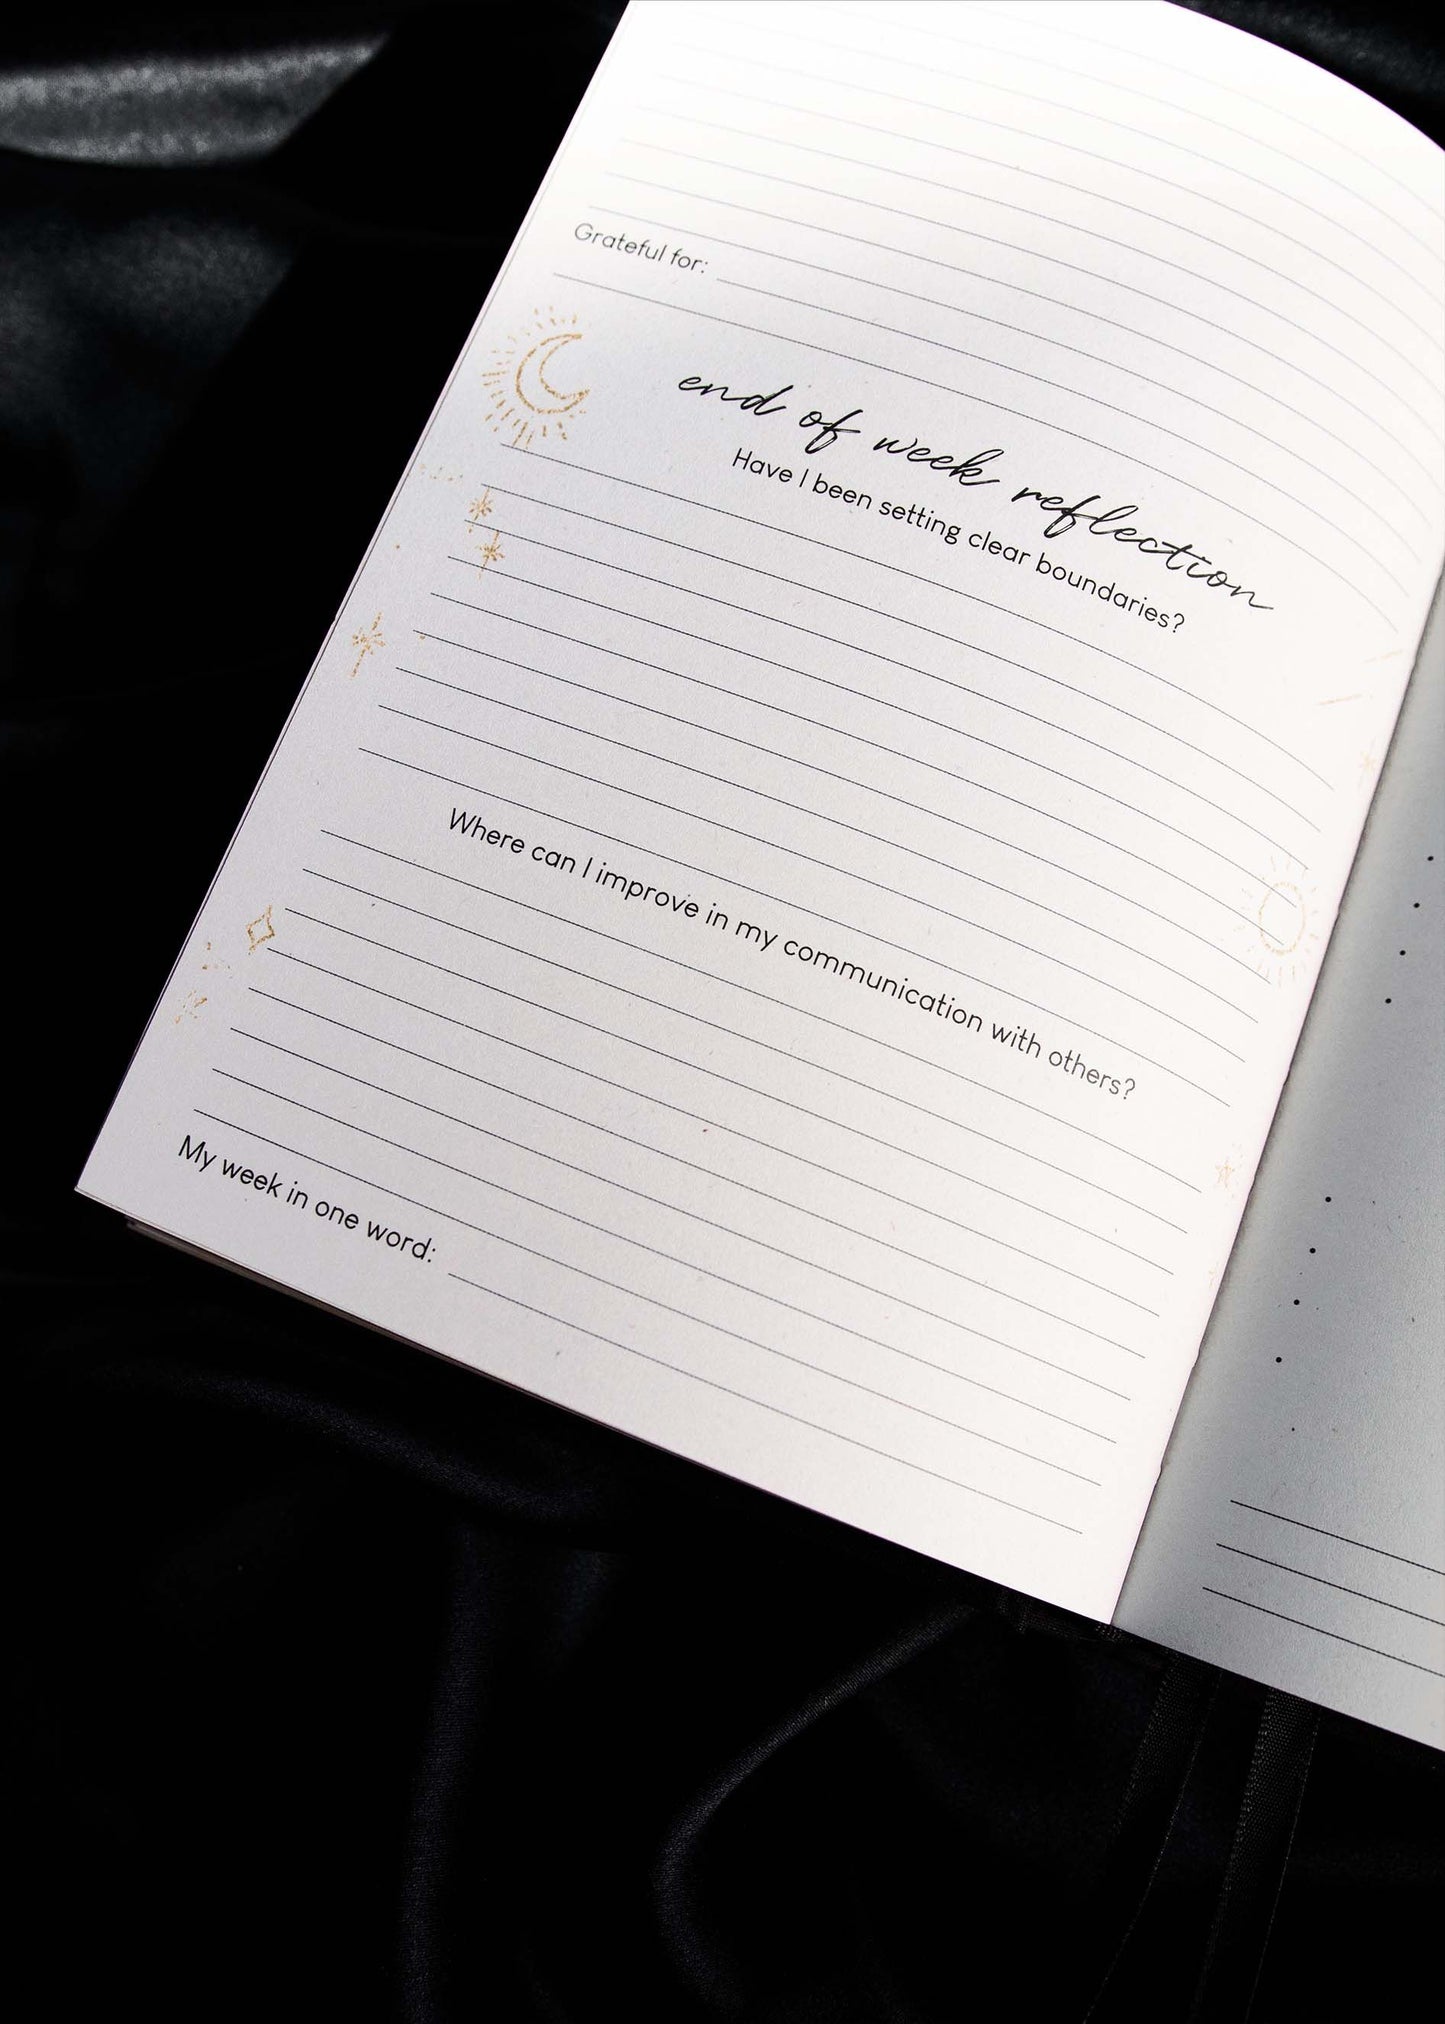 Grateful for:
end of week reflection
Have I been setting clear boundaries?
Where can I improve in my communication with others?
My week in one word: